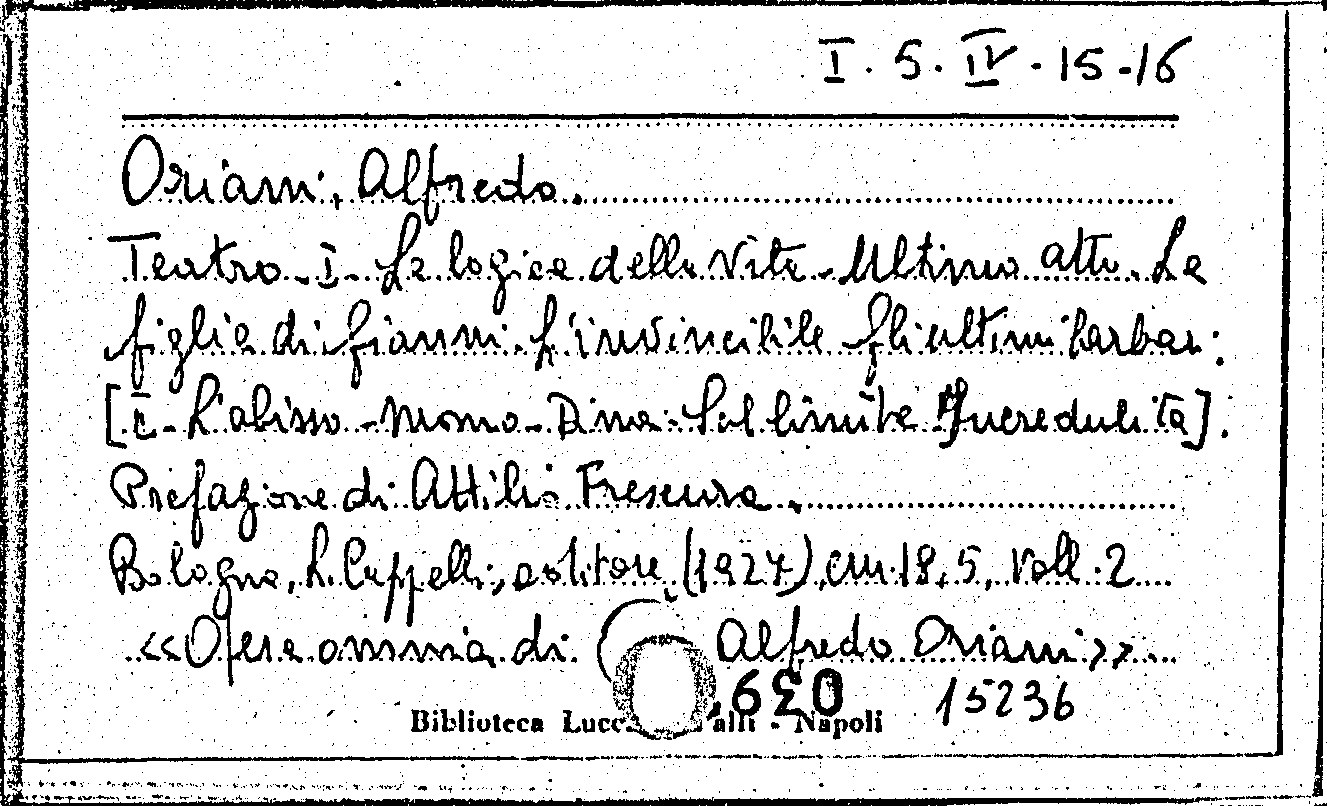 I. 5. IV. 15-16
Oriani, Alfredo.
Teatro - I - La logica della vita - Ultimo atto. La
figlia di Gianni. L'invincibile Gli ultimi barbari.
[II - L'abisso - Momo - Dina - Sul limite Incredulità].
Prefazione di Attilio Frescura.
Bologna, L. Cappelli, editore, (1927), cm. 18,5, Voll. 2
«Opera omnia di Alfredo Oriani».
15236
Biblioteca - Napoli